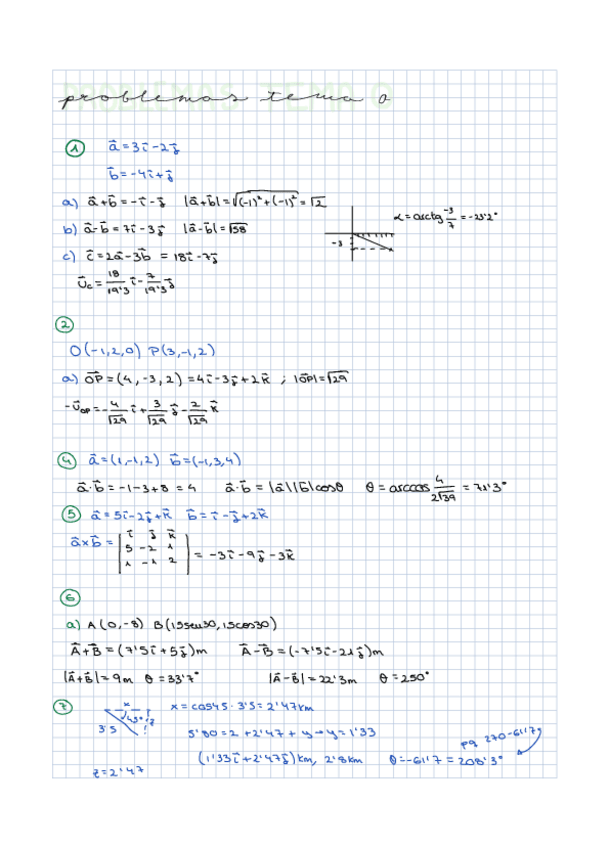 problemas tema 0
① a⃗ = 3i⃗ - 2j⃗
b⃗ = -4i⃗ + j⃗
a) a⃗+b⃗ = -i⃗ - j⃗ |a⃗+b⃗| = √(-1)²+(-1)² = √2
b) a⃗-b⃗ = 7i⃗ - 3j⃗ |a⃗-b⃗| = √58 -3 α = arctg -3/7 = -23'2°
c) c⃗ = 2a⃗ - 3b⃗ = 18i⃗ - 7j⃗
u⃗c = 18/19'3 i⃗ - 7/19'3 j⃗
②
O(-1,2,0) P(3,-1,2)
a) OP⃗ = (4,-3,2) = 4i⃗ - 3j⃗ + 2k⃗ ; |OP⃗| = √29
-u⃗OP = -4/√29 i⃗ + 3/√29 j⃗ - 2/√29 k⃗
④ a⃗ = (1,-1,2) b⃗ = (-1,3,4)
a⃗·b⃗ = -1-3+8 = 4 a⃗·b⃗ = |a⃗||b⃗|cosθ θ = arccos 4/2√39 = 71'3°
⑤ a⃗ = 5i⃗ - 2j⃗ + k⃗ b⃗ = i⃗ - j⃗ + 2k⃗
a⃗×b⃗ = | i⃗ j⃗ k⃗
5 -2 1
1 -1 2 | = -3i⃗ - 9j⃗ - 3k⃗
⑥
a) A(0,-8) B(15sen30, 15cos30)
A⃗+B⃗ = (7'5i⃗ + 5j⃗)m A⃗-B⃗ = (-7'5i⃗ - 21j⃗)m
|A⃗+B⃗| = 9m θ = 33'7° |A⃗-B⃗| = 22'3m θ = 250°
⑦ x x = cos45 · 3'5 = 2'47km
45° z
3'5 5'80 = 2 + 2'47 + y → y = 1'33
pq 270-61'7
(1'33i⃗ + 2'47j⃗)km, 2'8km θ = -61'7 = 208'3°
z = 2'47